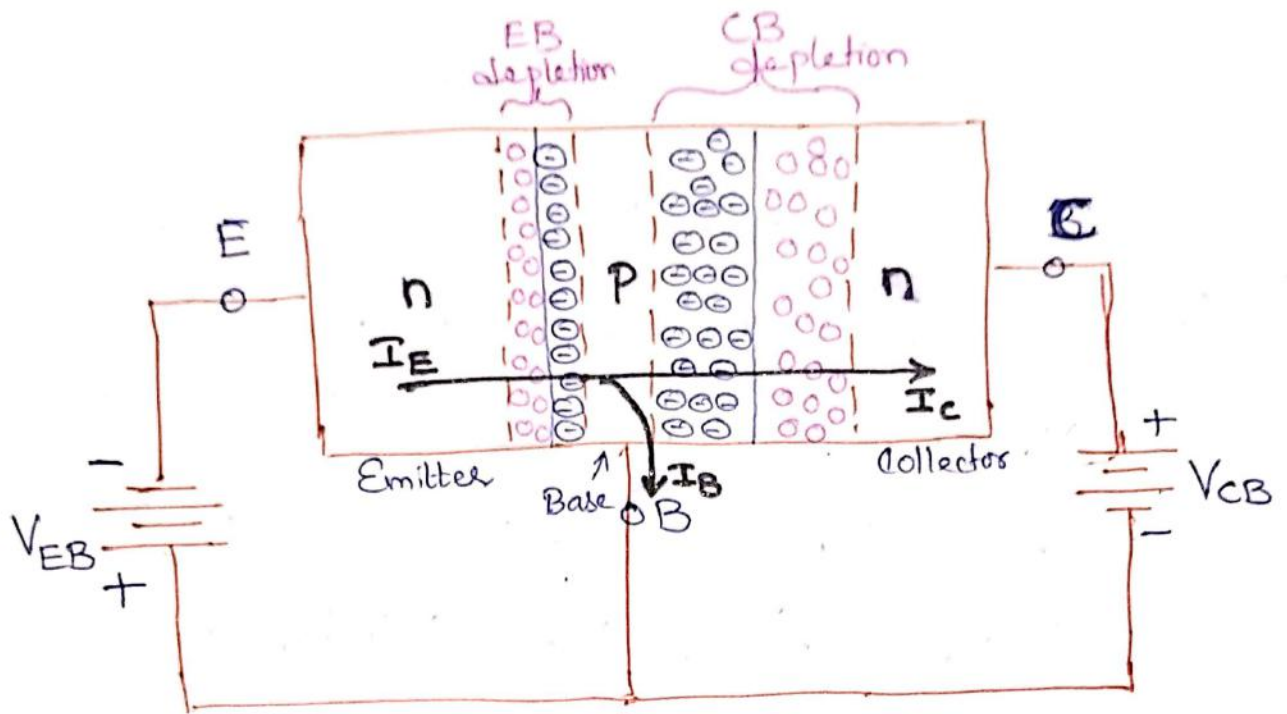 EB
depletion
CB
depletion
E
C
n
p
n
I_E
I_C
Emitter
Base
I_B
B
Collector
-
V_EB
+
+
V_CB
-